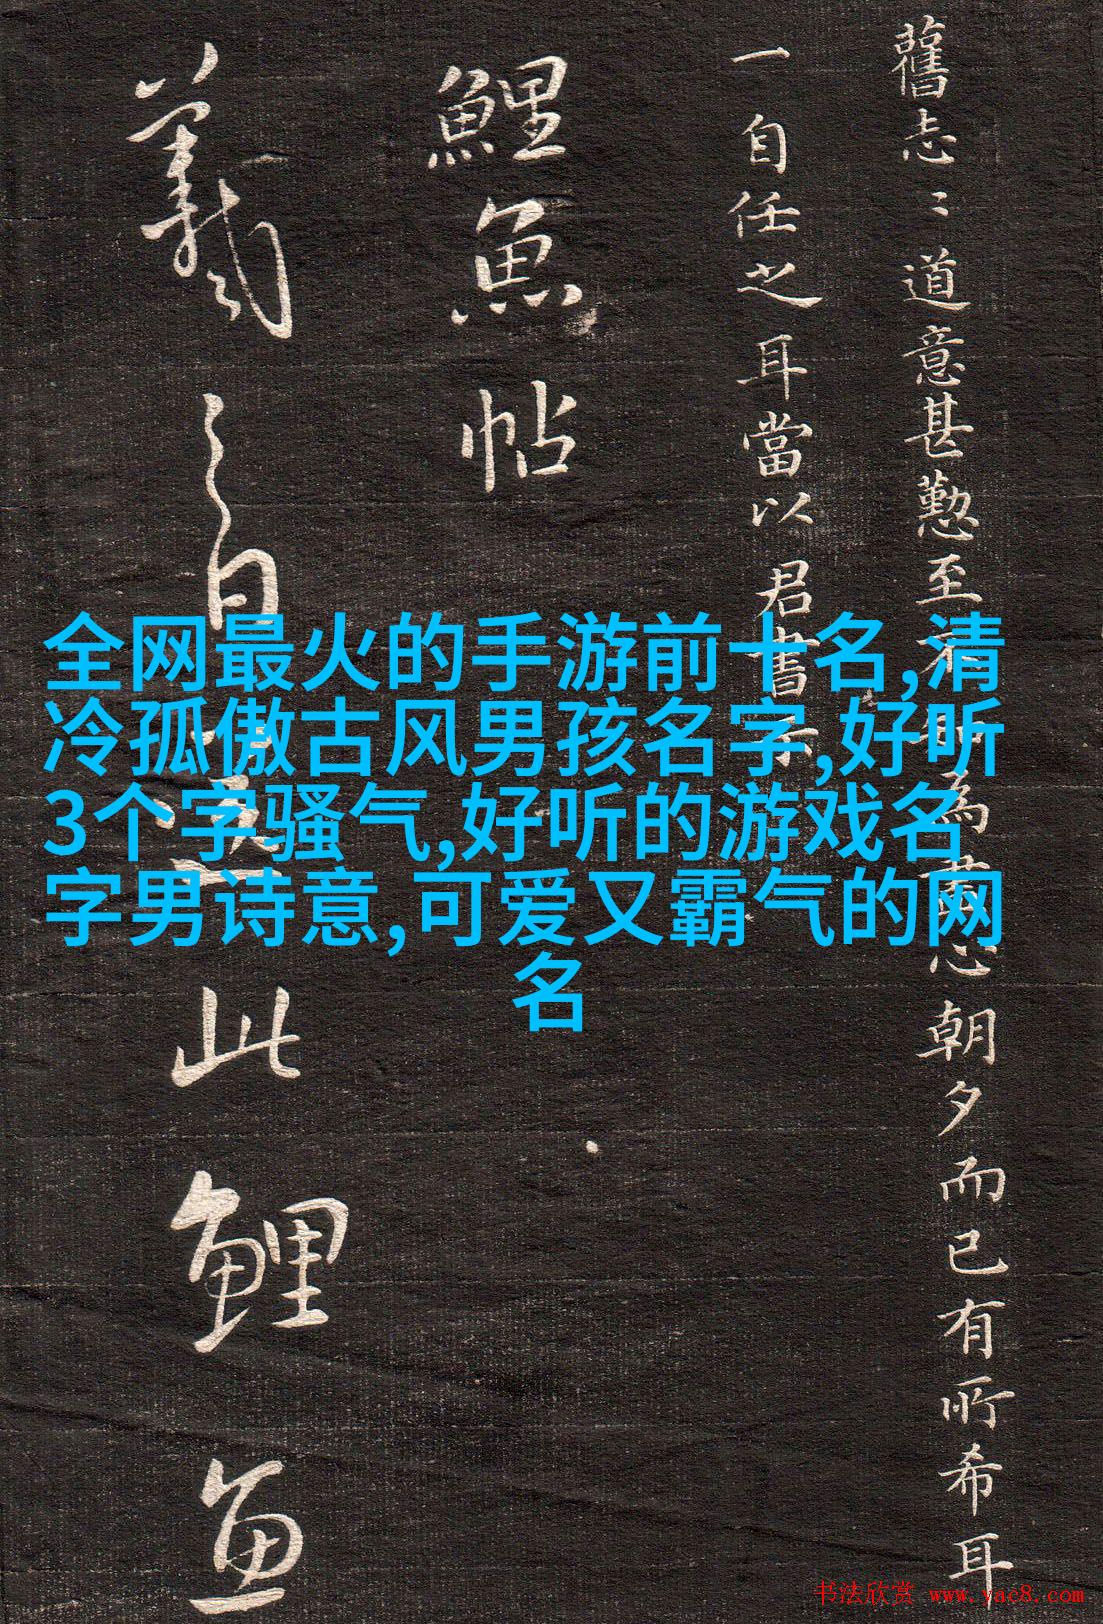 舊志〻道意甚懃至
為
心朝夕而已有所希耳
一自任之耳當以君書
鯉魚帖
羲之白
此鯉魚
全网最火的手游前十名,清
冷孤傲古风男孩名字,好听
3个字骚气,好听的游戏名
字男诗意,可爱又霸气的网
名
书法欣赏 www.yac8.com